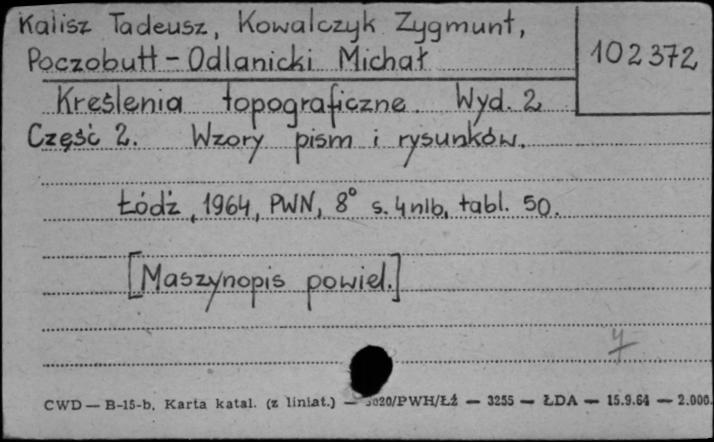 Kalisz Tadeusz, Kowalczyk Zygmunt,
Poczobutt-Odlanicki Michał
102372
Kreślenia topograficzne. Wyd. 2
Część 2. Wzory pism i rysunków.
Łódź, 1964, PWN, 8° s. 4 nlb, tabl. 50.
[Maszynopis powiel.]
CWD — B-15-b, Karta katal. (z liniat.) — 020/PWH/Łź — 3255 — ŁDA — 15.9.64 — 2.000.